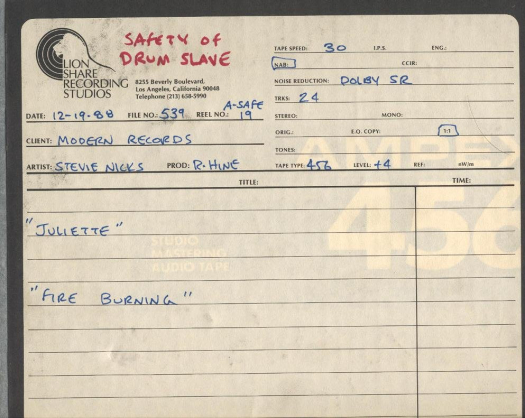 SAFETY OF
DRUM SLAVE
LION
SHARE
RECORDING
STUDIOS
8255 Beverly Boulevard,
Los Angeles, California 90048
Telephone (213) 658-5990
TAPE SPEED: 30 I.P.S. ENG.:
NAB: CCIR:
NOISE REDUCTION: DOLBY SR
TRKS: 24
A-SAFE
DATE: 12-19-88 FILE NO.: 539 REEL NO.: 19
STEREO: MONO:
ORIG.: E.Q. COPY: 1:1
CLIENT: MODERN RECORDS
TONES:
ARTIST: STEVIE NICKS PROD: R. HINE
TAPE TYPE: 456 LEVEL: +4 REF: nW/m
TITLE: TIME:
AMPEX
456
STUDIO
MASTERING
AUDIO TAPE
"JULIETTE"
"FIRE BURNING"